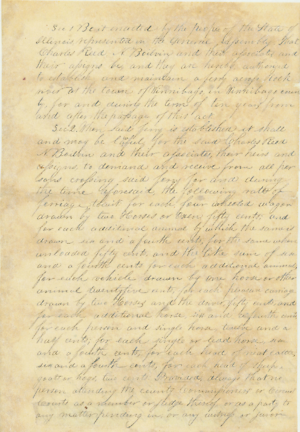 Sec 1 Be it enacted by the People of the State of
Illinois represented in the General Assembly That
Charles Reed & Bodwin and their associates and
their assigns be and they are hereby authorized
to establish and maintain a ferry across Rock
river at the town of Winnebago in Winnebago county
for and during the term of ten years from
and after the passage of this act
Sec 2 When said ferry is established it shall
and may be lawful for the said Charles Reed
& Bodwin and their associates, their heirs and
assigns to demand and receive from all per
sons crossing said ferry for and during
the time aforesaid the following rates of
ferriage, that is for each four wheeled wagon
drawn by two Horses or Oxen fifty cents, and
for each additional animal by which the same is
drawn six and a fourth cents, for the same when
unloaded fifty cents and the like sum of six
and a fourth cents for each additional animal
for each vehicle drawn by one horse or other
animal twenty five cents, for all pleasure carriages
drawn by two Horses and the driver fifty cents and
for each additional horse six and a fourth cents
for each person and single horse twelve and a
half cents, for each single or footman six
and a fourth cents, for each head of neat cattle
six and a fourth cents, for each head of sheep
goat or hogs two cents Provided always that no
person attending the county commissioners or
courts as a member or judge thereof or as a party to
any matter pending in or any witness or juror